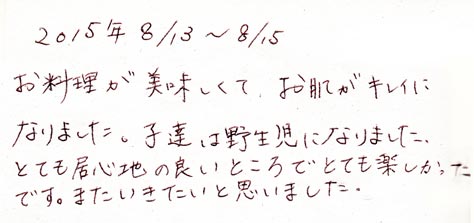 2015年 8/13～8/15
お料理が美味しくて、お肌がキレイに
なりました。子達は野生児になりました、
とても居心地の良いところでとても楽しかった
です。またいきたいと思いました。